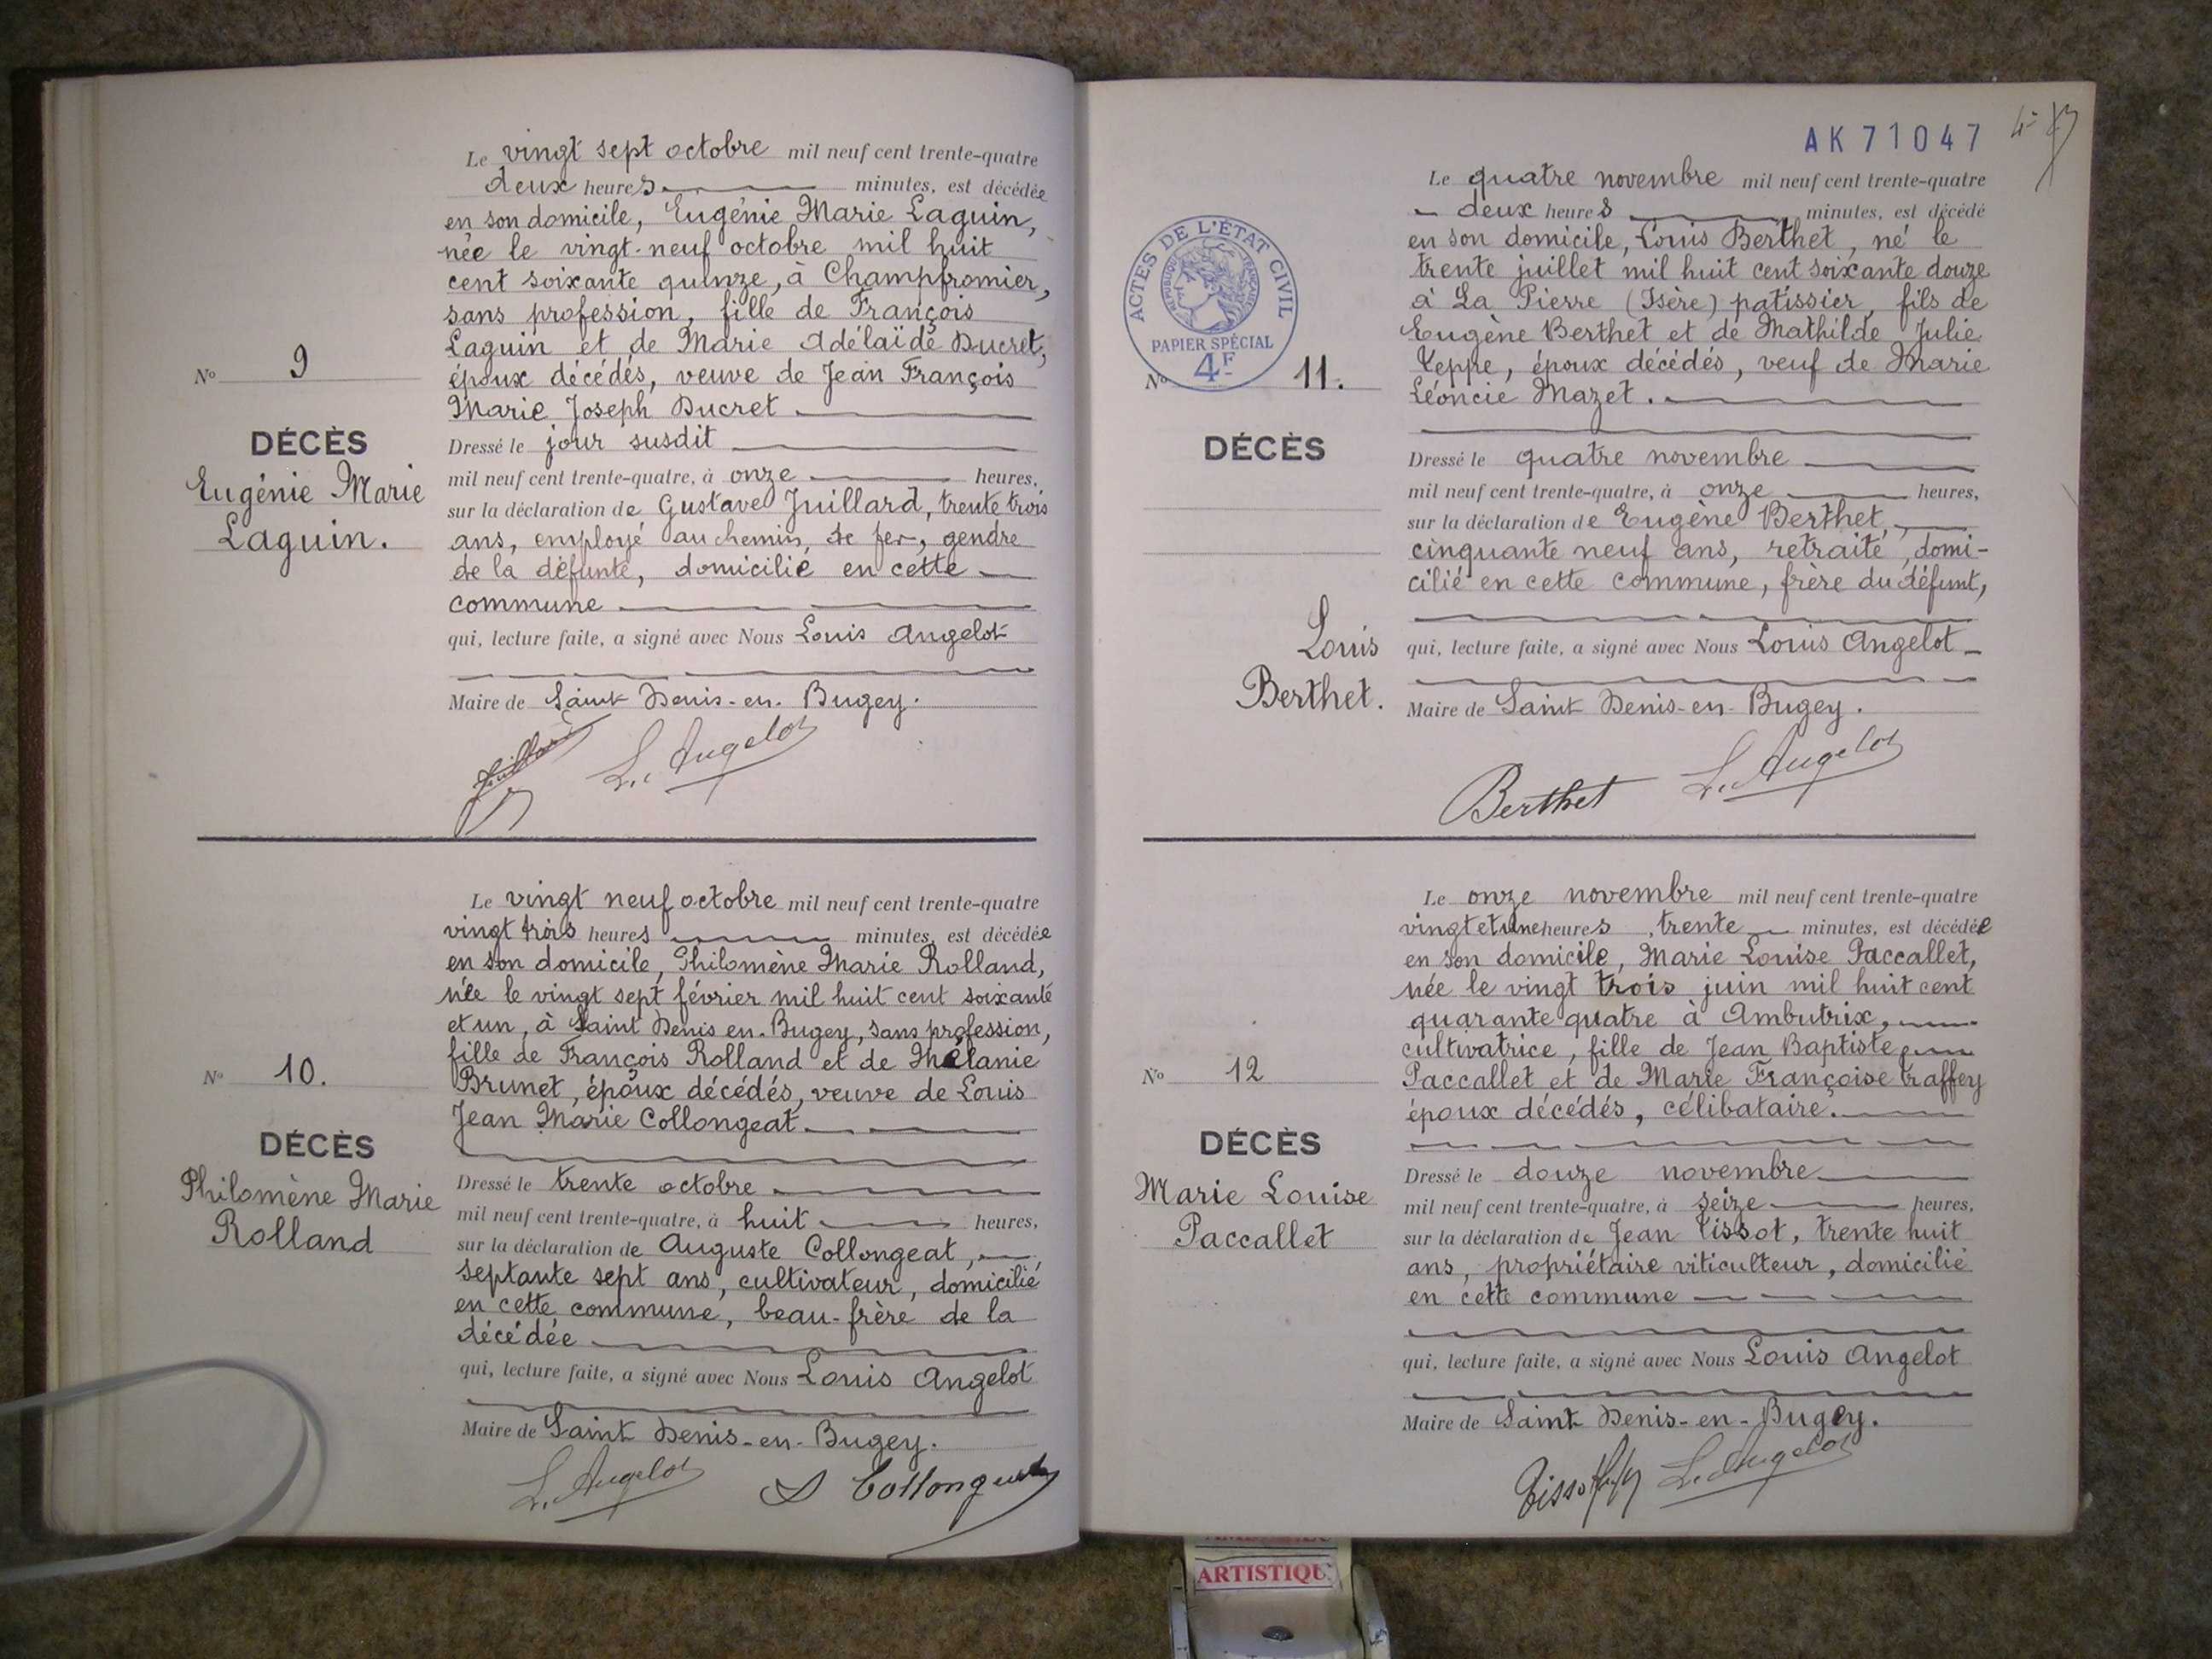 Le vingt sept octobre mil neuf cent trente-quatre
deux heures minutes, est décédée
en son domicile, Eugénie Marie Laguin,
née le vingt-neuf octobre mil huit
cent soixante quinze, à Champfromier,
sans profession, fille de François
Laguin et de Marie Adélaïde Ducret,
époux décédés, veuve de Jean François
Marie Joseph Ducret
Nº 9
DÉCÈS
Eugénie Marie
Laguin.
Dressé le jour susdit
mil neuf cent trente-quatre, à onze heures,
sur la déclaration de Gustave Juillard, trente trois
ans, employé au chemin de fer, gendre
de la défunte, domicilié en cette
commune
qui, lecture faite, a signé avec Nous Louis Angelot
Maire de Saint Denis-en-Bugey.
Juillard L. Angelot
Le vingt neuf octobre mil neuf cent trente-quatre
vingt trois heures minutes, est décédée
en son domicile, Philomène Marie Rolland,
née le vingt sept février mil huit cent soixante
et un, à Saint Denis en-Bugey, sans profession,
fille de François Rolland et de Mélanie
Brunet, époux décédés, veuve de Louis
Jean Marie Collongeat
Nº 10.
DÉCÈS
Philomène Marie
Rolland
Dressé le trente octobre
mil neuf cent trente-quatre, à huit heures,
sur la déclaration de Auguste Collongeat,
septante sept ans, cultivateur, domicilié
en cette commune, beau-frère de la
décédée
qui, lecture faite, a signé avec Nous Louis Angelot
Maire de Saint Denis-en-Bugey.
L. Angelot Collongeat
AK 71047
Le quatre novembre mil neuf cent trente-quatre
deux heures minutes, est décédé
en son domicile, Louis Berthet, né le
trente juillet mil huit cent soixante douze
à La Pierre (Isère) patissier, fils de
Eugène Berthet et de Mathilde Julie
Teppe, époux décédés, veuf de Marie
Léoncie Mazet.
ACTES DE L'ÉTAT CIVIL
RÉPUBLIQUE FRANÇAISE
PAPIER SPÉCIAL
4F
Nº 11.
DÉCÈS
Louis
Berthet.
Dressé le quatre novembre
mil neuf cent trente-quatre, à onze heures,
sur la déclaration de Eugène Berthet,
cinquante neuf ans, retraité, domi-
cilié en cette commune, frère du défunt,
qui, lecture faite, a signé avec Nous Louis Angelot
Maire de Saint Denis-en-Bugey.
Berthet L. Angelot
Le onze novembre mil neuf cent trente-quatre
vingt et une heures, trente minutes, est décédée
en son domicile, Marie Louise Paccallet,
née le vingt trois juin mil huit cent
quarante quatre à Ambutrix,
cultivatrice, fille de Jean Baptiste
Paccallet et de Marie Françoise Traffey
époux décédés, célibataire.
Nº 12
DÉCÈS
Marie Louise
Paccallet
Dressé le douze novembre
mil neuf cent trente-quatre, à seize heures,
sur la déclaration de Jean Tissot, trente huit
ans, propriétaire viticulteur, domicilié
en cette commune
qui, lecture faite, a signé avec Nous Louis Angelot
Maire de Saint Denis-en-Bugey.
Tissot L. Angelot
ARTISTIQU